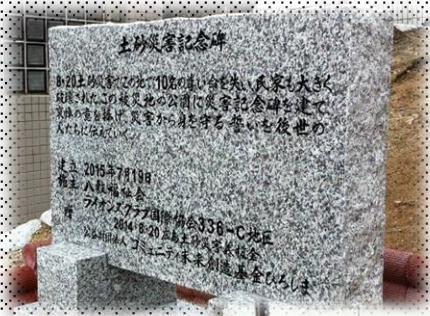 土砂災害記念碑
8・20土砂災害でこの地で10名の尊い命を失い、民家も大きく
破壊されたこの被災地の公園に災害記念碑を建て
哀悼の意を捧げ、災害から身を守る誓いを後世の
人たちに伝えていく。
建立 2015年7月19日
施主 八敷福祉会
ライオンズクラブ国際協会336-C地区
2014・8・20広島土砂災害
公益財団法人 コミュニティ未来創造基金ひろしま